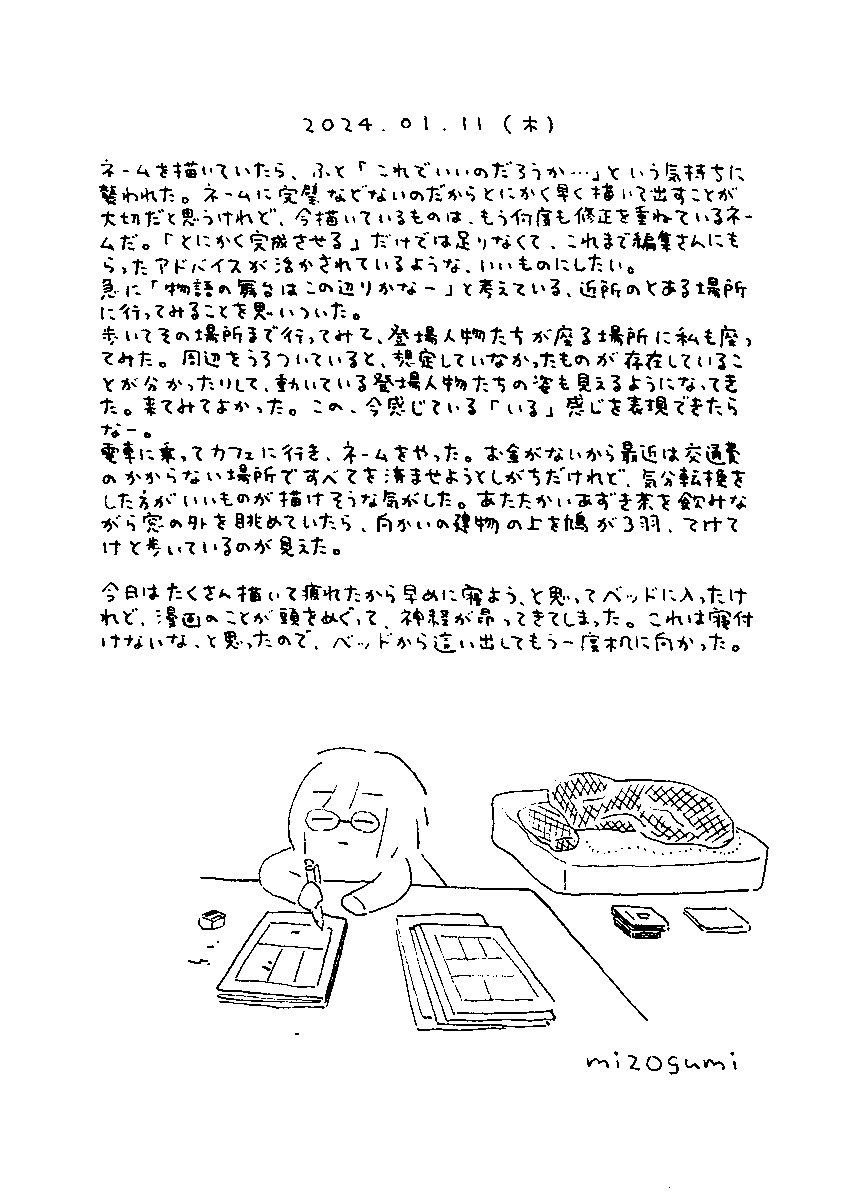 2024.01.11(木)
ネームを描いていたら、ふと「これでいいのだろうか…」という気持ちに
襲われた。ネームに完璧などないのだからとにかく早く描いて出すことが
大切だと思うけれど、今描いているものは、もう何度も修正を重ねているネー
ムだ。「とにかく完成させる」だけでは足りなくて、これまで編集さんにも
らったアドバイスが活かされているような、いいものにしたい。
急に「物語の舞台はこの辺りかなー」と考えている、近所のとある場所
に行ってみることを思いついた。
歩いてその場所まで行ってみて、登場人物たちが座る場所に私も座っ
てみた。周辺をうろついていると、想定していなかったものが存在しているこ
とが分かったりして、動いている登場人物たちの姿も見えるようになってき
た。来てみてよかった。この、今感じている「いる」感じを表現できたら
なー。
電車に乗ってカフェに行き、ネームをやった。お金がないから最近は交通費
のかからない場所ですべてを済ませようとしがちだけれど、気分転換を
した方がいいものが描けそうな気がした。あたたかいあずき茶を飲みな
がら窓の外を眺めていたら、向かいの建物の上を鳩が3羽、てけて
けと歩いているのが見えた。
今日はたくさん描いて疲れたから早めに寝よう、と思ってベッドに入ったけ
れど、漫画のことが頭をめぐって、神経が昂ってきてしまった。これは寝付
けないな、と思ったので、ベッドから這い出してもう一度机に向かった。
mizogumi